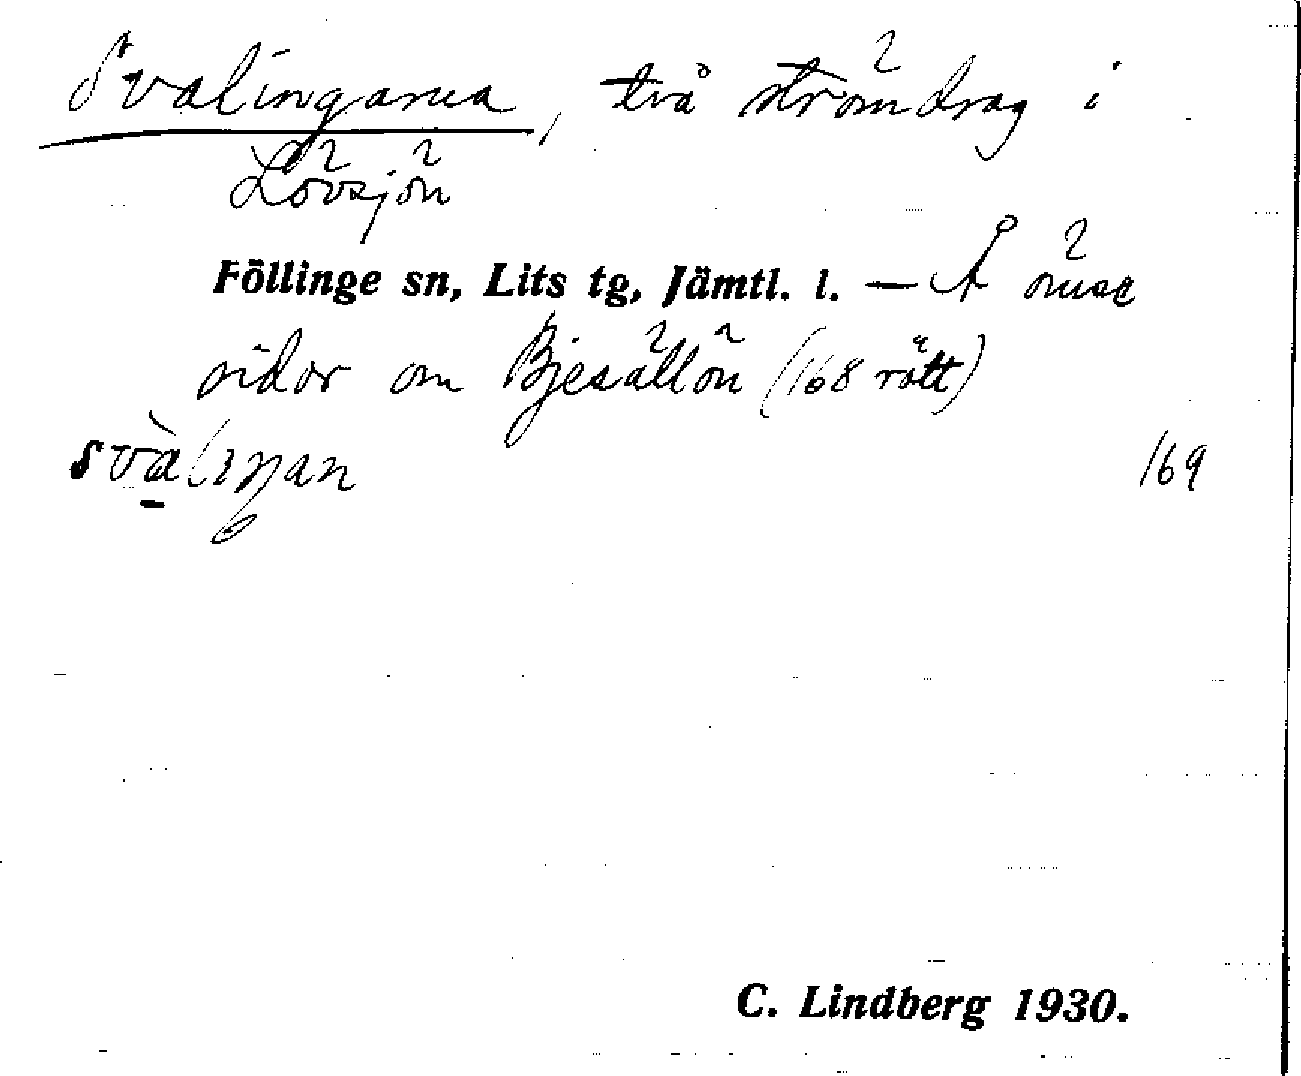 Svalingarna, två strömdrag i
Lövsjön
Föllinge sn, Lits tg, Jämtl. l. – Å ömse
sidor om Bjesällön (168 rätt)
svàlıŋan 169
C. Lindberg 1930.